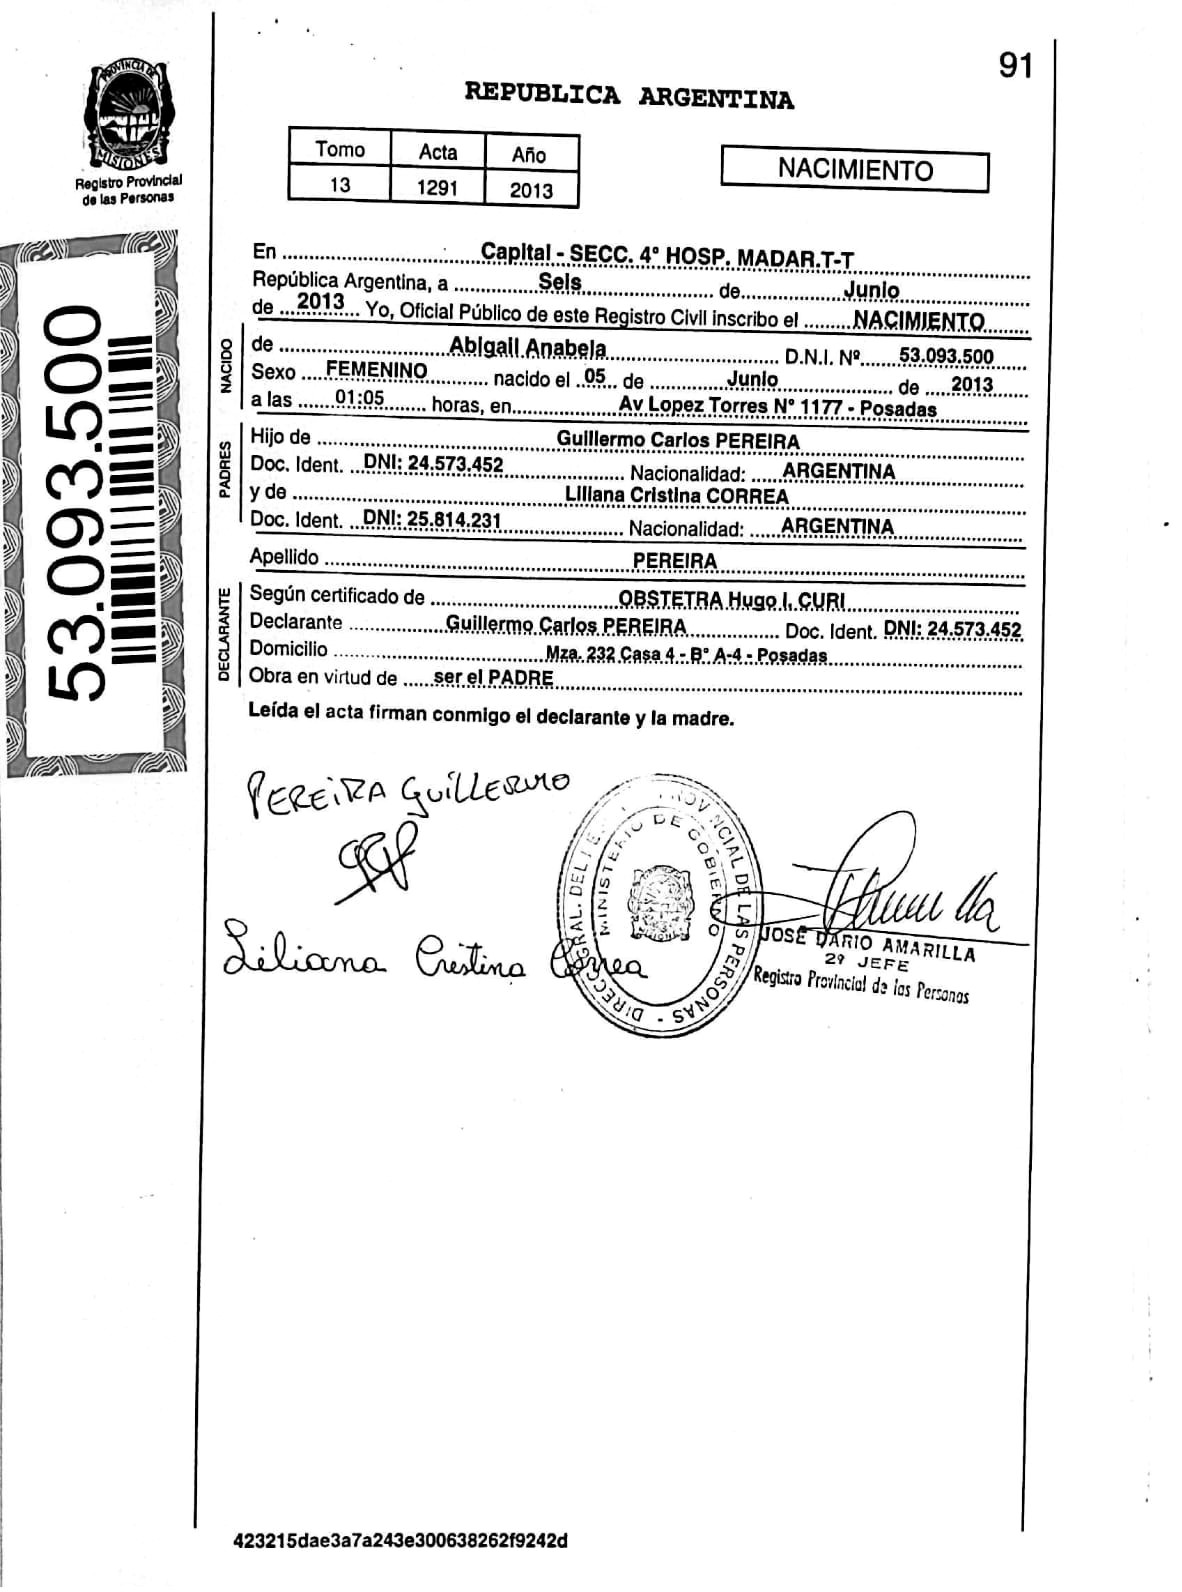 91
REPUBLICA ARGENTINA
PROVINCIA DE
MISIONES
Registro Provincial
de las Personas
Tomo Acta Año
13 1291 2013
NACIMIENTO
53.093.500
En ........ Capital - SECC. 4º HOSP. MADAR.T-T
República Argentina, a ........ Seis ........ de ........ Junio
de .... 2013 .... Yo, Oficial Público de este Registro Civil inscribo el ........ NACIMIENTO ........
NACIDO
de ........ Abigail Anabela ........ D.N.I. Nº ...... 53.093.500
Sexo .... FEMENINO ........ nacido el .. 05 .. de ........ Junio ........ de .... 2013
a las ...... 01:05 ...... horas, en ........ Av Lopez Torres Nº 1177 - Posadas
PADRES
Hijo de ........ Guillermo Carlos PEREIRA
Doc. Ident. .. DNI: 24.573.452 ........ Nacionalidad: ..... ARGENTINA
y de ........ Liliana Cristina CORREA
Doc. Ident. .. DNI: 25.814.231 ........ Nacionalidad: ..... ARGENTINA
Apellido ........ PEREIRA
DECLARANTE
Según certificado de ........ OBSTETRA Hugo I. CURI
Declarante ........ Guillermo Carlos PEREIRA ........ Doc. Ident. DNI: 24.573.452
Domicilio ........ Mza. 232 Casa 4 - Bº A-4 - Posadas
Obra en virtud de ..... ser el PADRE
Leída el acta firman conmigo el declarante y la madre.
PEREIRA GUILLERMO
Liliana Cristina Correa
PROVINCIAL DE LAS PERSONAS - DIRECC. GRAL. DEL
MINISTERIO DE GOBIERNO
JOSÉ DARIO AMARILLA
2º JEFE
Registro Provincial de las Personas
423215dae3a7a243e300638262f9242d